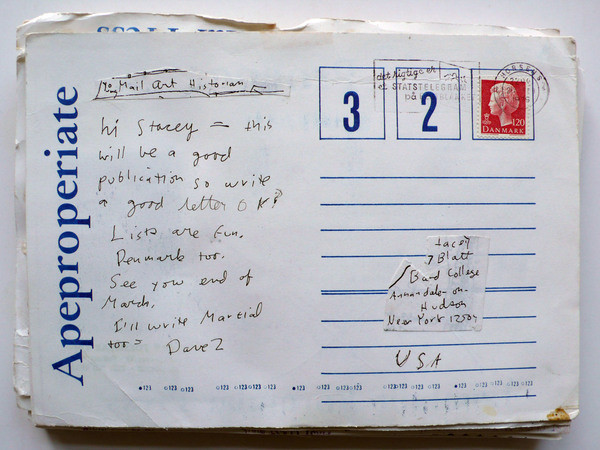 Apeproperiate
Mail Art Historian
hi Stacey = this
will be a good
publication so write
a good letter OK?
Lists are fun.
Denmark too.
See you end of
March.
I'll write Martial
too = Dave Z
3
2
det rigtige er
et STATSTELEGRAM
på
HORSENS
120
DANMARK
tacey
Blatt
Bard College
Annandale-on-
Hudson
New York 12504
USA
123 123 123 123 123 123 123 123 123 123 123